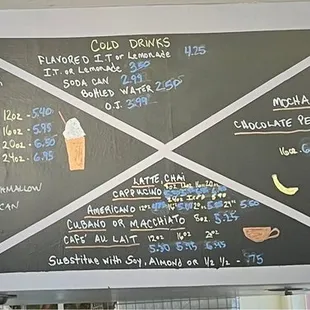 COLD DRINKS
FLAVORED I.T or Lemonade 4.25
I.T. or Lemonade 3.50
SODA CAN 2.99
Bottled Water 2.50
O.J. 3.99
12oz - 5.40
16oz - 5.95
20oz - 6.50
24oz - 6.95
MOCHA
CHOCOLATE PE
16oz
LATTE, CHAI
CAPPUCINO
AMERICANO
CUBANO or MACCHIATO 8oz 5.25
CAFE' AU LAIT 12oz 16oz
5.50 5.95 6.45
Substitute with Soy, Almond or 1/2 1/2 - .75